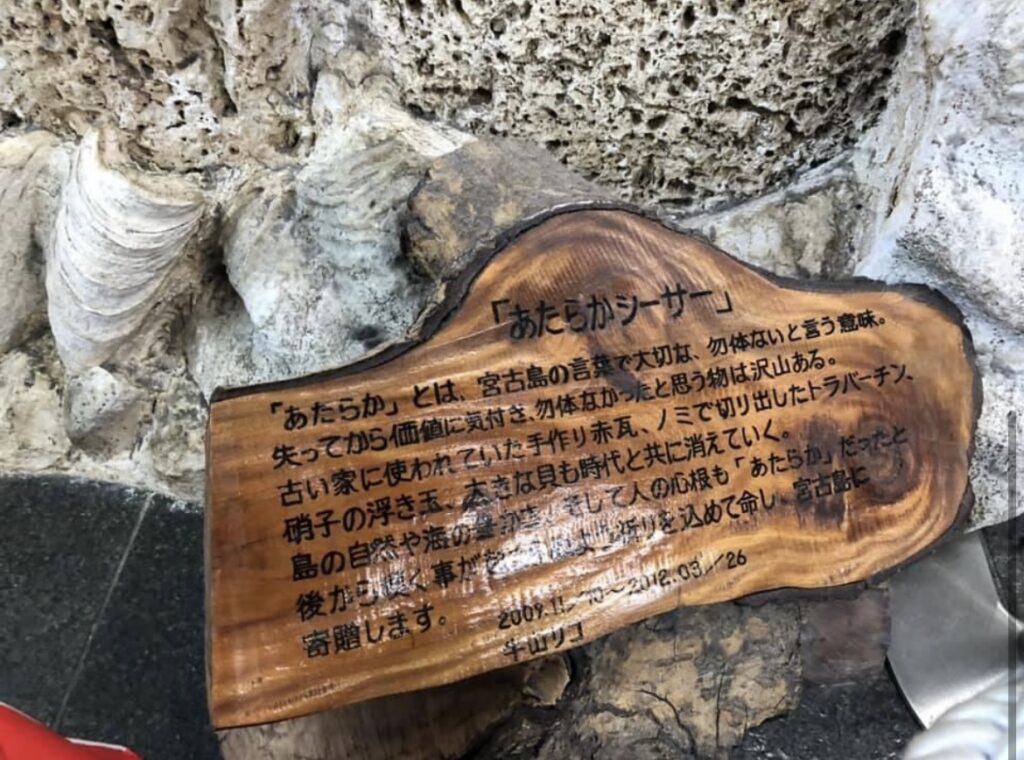 「あたらかシーサー」
「あたらか」とは、宮古島の言葉で大切な、勿体ないと言う意味。
失ってから価値に気付き、勿体なかったと思う物は沢山ある。
古い家に使われていた手作り赤瓦、ノミで切り出したトラバーチン、
硝子の浮き玉、大きな貝も時代と共に消えていく。
島の自然や海の そして人の心根も「あたらか」だったと
後から嘆く事が 祈りを込めて命し、宮古島に
寄贈します。
2009.11／10～2012.03／26
牛山リコ